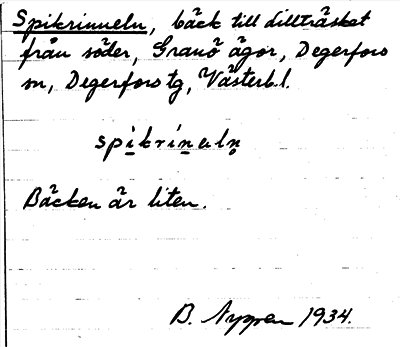 Spikrinneln, bäck till dillträsket
från söder, Granö ägor, Degerfors
sn, Degerfors tg, Västerb.l.
spi̲krín̲əln̥
Bäcken är liten.
B. Nygren 1934.